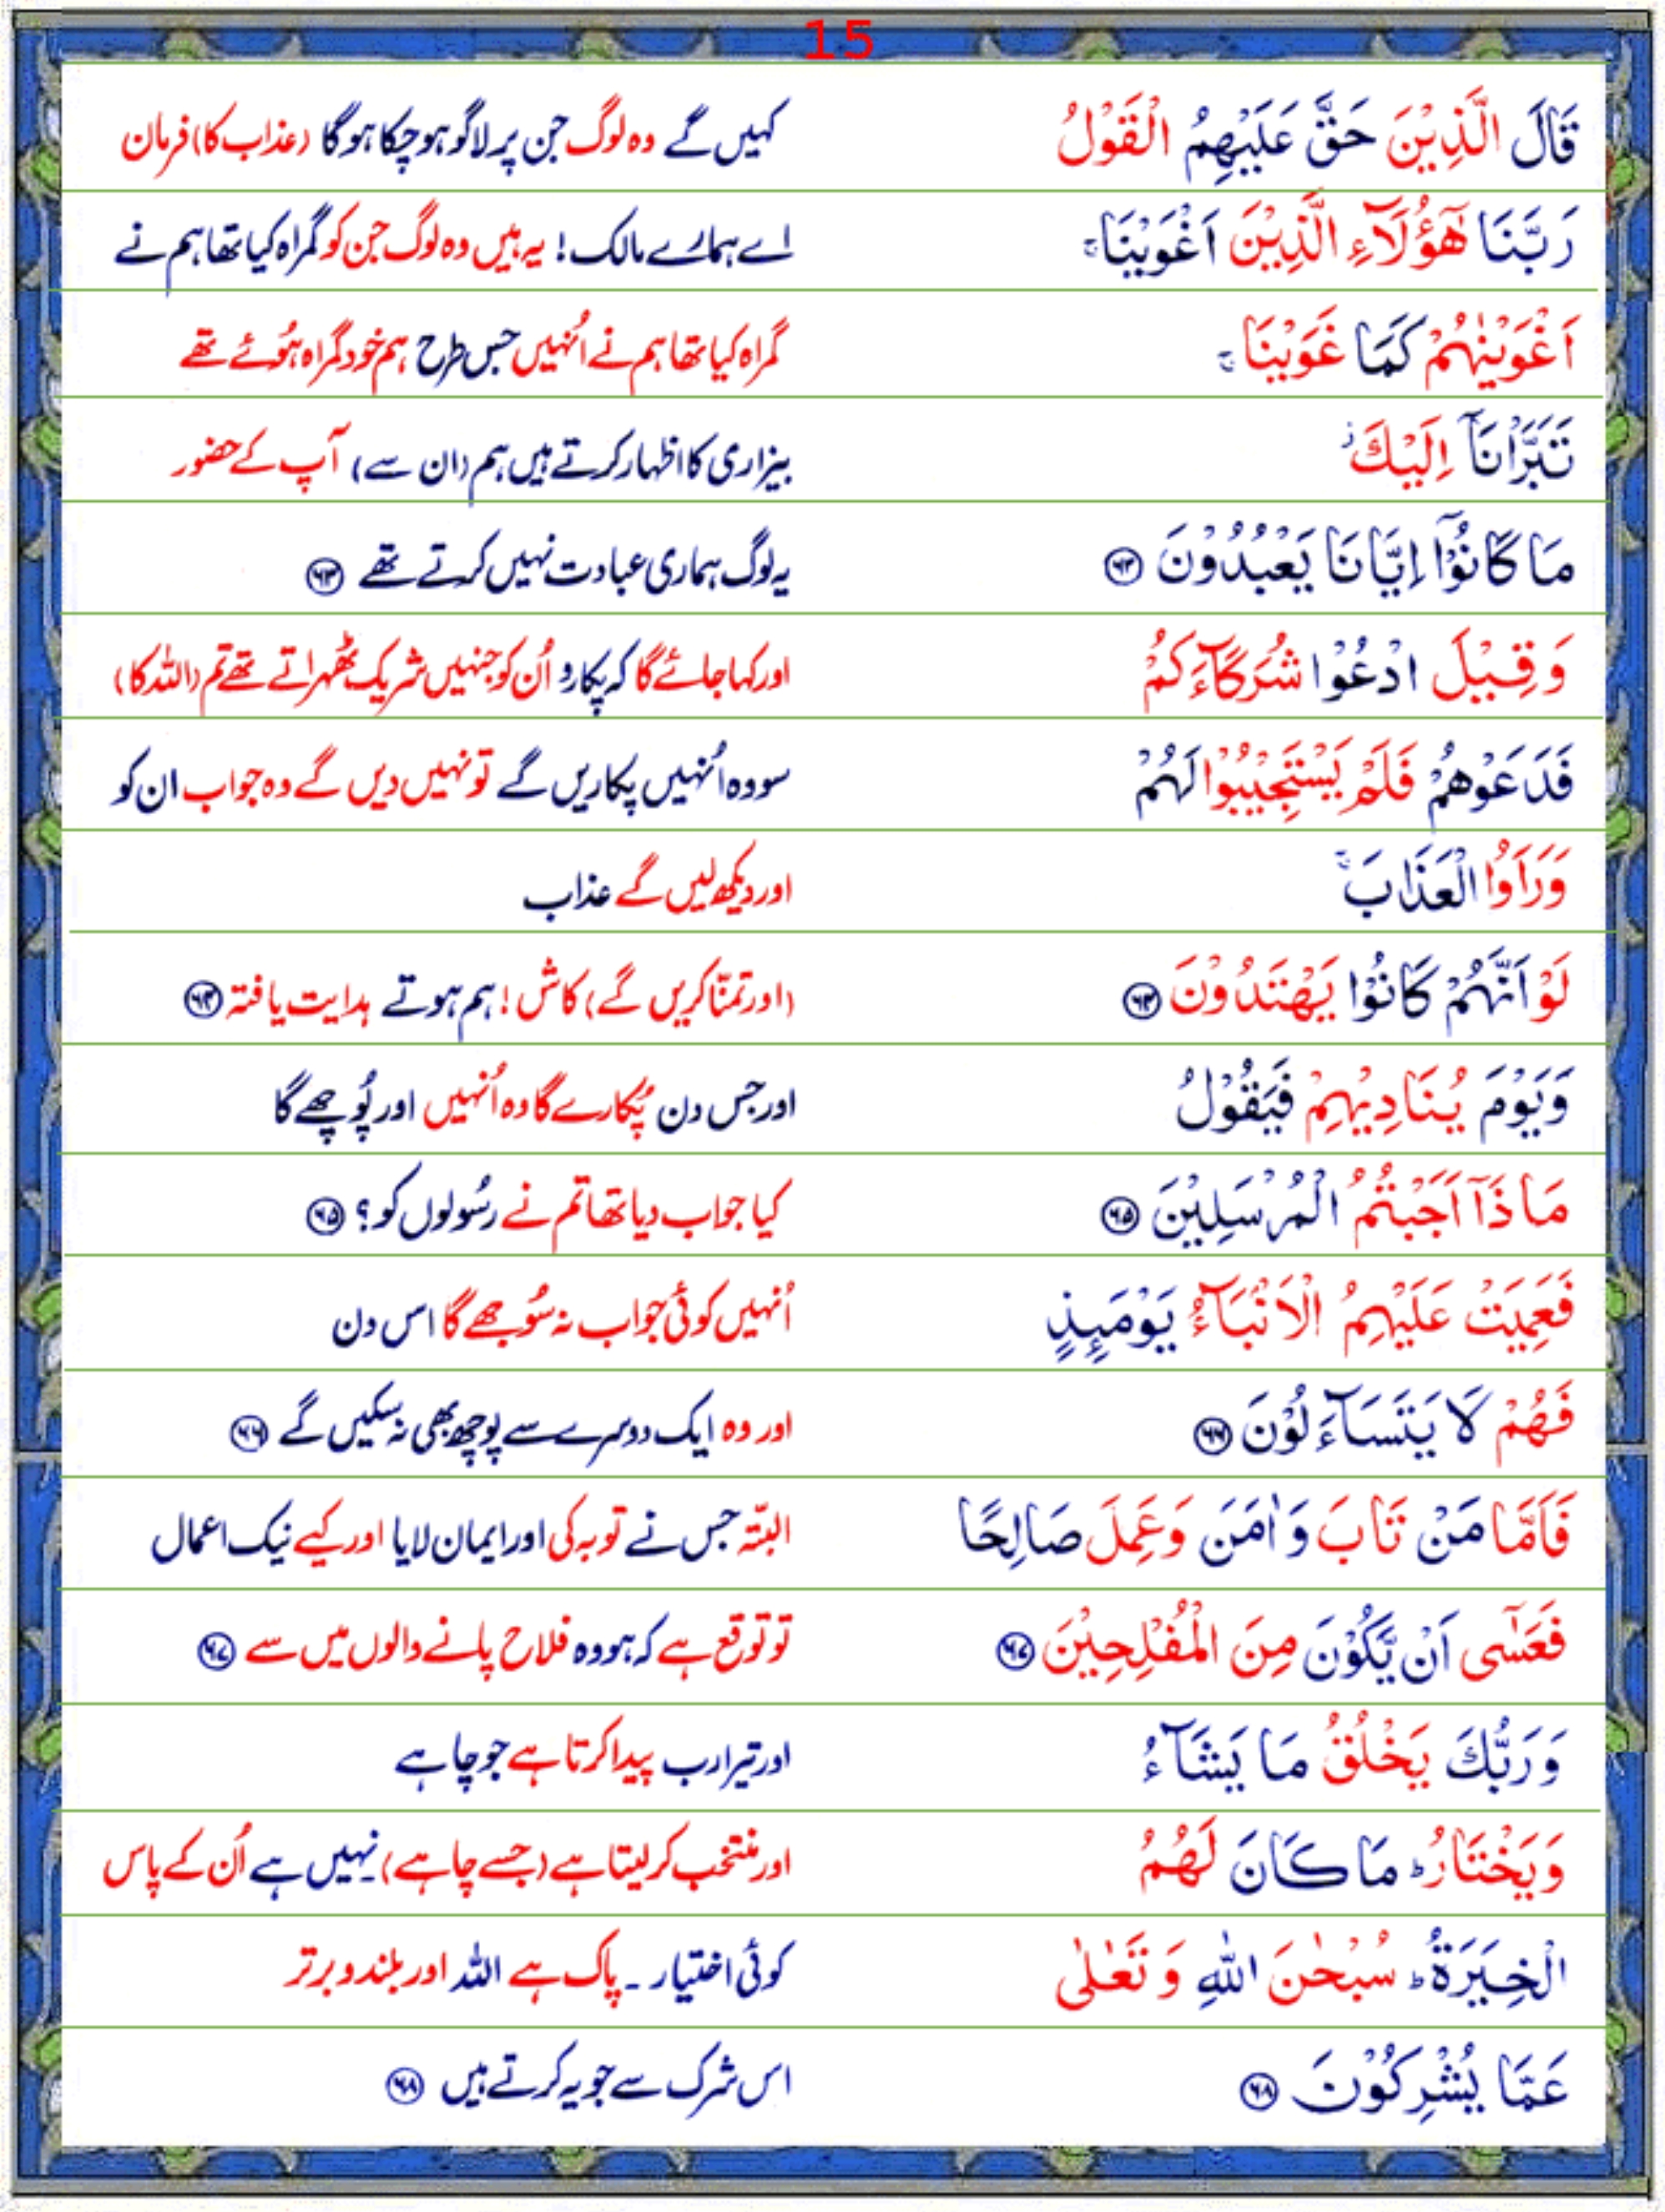 15
قَالَ الَّذِيْنَ حَقَّ عَلَيْهِمُ الْقَوْلُ کہیں گے وہ لوگ جن پر لاگو ہو چکا ہو گا (عذاب کا) فرمان
رَبَّنَا هٰٓؤُلَآءِ الَّذِيْنَ اَغْوَيْنَا ۚ اے ہمارے مالک! یہ ہیں وہ لوگ جن کو گمراہ کیا تھا ہم نے
اَغْوَيْنٰهُمْ كَمَا غَوَيْنَا ۚ گمراہ کیا تھا ہم نے اُنہیں جس طرح ہم خود گمراہ ہُوئے تھے
تَبَرَّاْنَآ اِلَيْكَ ۫ بیزاری کا اظہار کرتے ہیں ہم (ان سے) آپ کے حضور
مَا كَانُوْٓا اِيَّانَا يَعْبُدُوْنَ ۶۳ یہ لوگ ہماری عبادت نہیں کرتے تھے ۶۳
وَقِيْلَ ادْعُوْا شُرَكَآءَكُمْ اور کہا جائے گا کہ پکارو اُن کو جنہیں شریک ٹھہراتے تھے تم (اللہ کا)
فَدَعَوْهُمْ فَلَمْ يَسْتَجِيْبُوْا لَهُمْ سو وہ اُنہیں پکاریں گے تو نہیں دیں گے وہ جواب ان کو
وَرَاَوُا الْعَذَابَ ۚ اور دیکھ لیں گے عذاب
لَوْ اَنَّهُمْ كَانُوْا يَهْتَدُوْنَ ۶۴ (اور تمنّا کریں گے) کاش! ہم ہوتے ہدایت یافتہ ۶۴
وَيَوْمَ يُنَادِيْهِمْ فَيَقُوْلُ اور جس دن پُکارے گا وہ اُنہیں اور پُوچھے گا
مَاذَآ اَجَبْتُمُ الْمُرْسَلِيْنَ ۶۵ کیا جواب دیا تھا تم نے رسُولوں کو؟ ۶۵
فَعَمِيَتْ عَلَيْهِمُ الْاَنْۢبَآءُ يَوْمَئِذٍ اُنہیں کوئی جواب نہ سُوجھے گا اس دن
فَهُمْ لَا يَتَسَآءَلُوْنَ ۶۶ اور وہ ایک دوسرے سے پوچھ بھی نہ سکیں گے ۶۶
فَاَمَّا مَنْ تَابَ وَاٰمَنَ وَعَمِلَ صَالِحًا البتّہ جس نے توبہ کی اور ایمان لایا اور کیے نیک اعمال
فَعَسٰٓى اَنْ يَّكُوْنَ مِنَ الْمُفْلِحِيْنَ ۶۷ تو توقع ہے کہ ہو وہ فلاح پانے والوں میں سے ۶۷
وَرَبُّكَ يَخْلُقُ مَا يَشَآءُ اور تیرا رب پیدا کرتا ہے جو چاہے
وَيَخْتَارُ ؕ مَا كَانَ لَهُمُ اور منتخب کر لیتا ہے (جسے چاہے) نہیں ہے اُن کے پاس
الْخِيَرَةُ ؕ سُبْحٰنَ اللّٰهِ وَتَعٰلٰى کوئی اختیار۔ پاک ہے اللہ اور بلند و برتر
عَمَّا يُشْرِكُوْنَ ۶۸ اس شرک سے جو یہ کرتے ہیں ۶۸